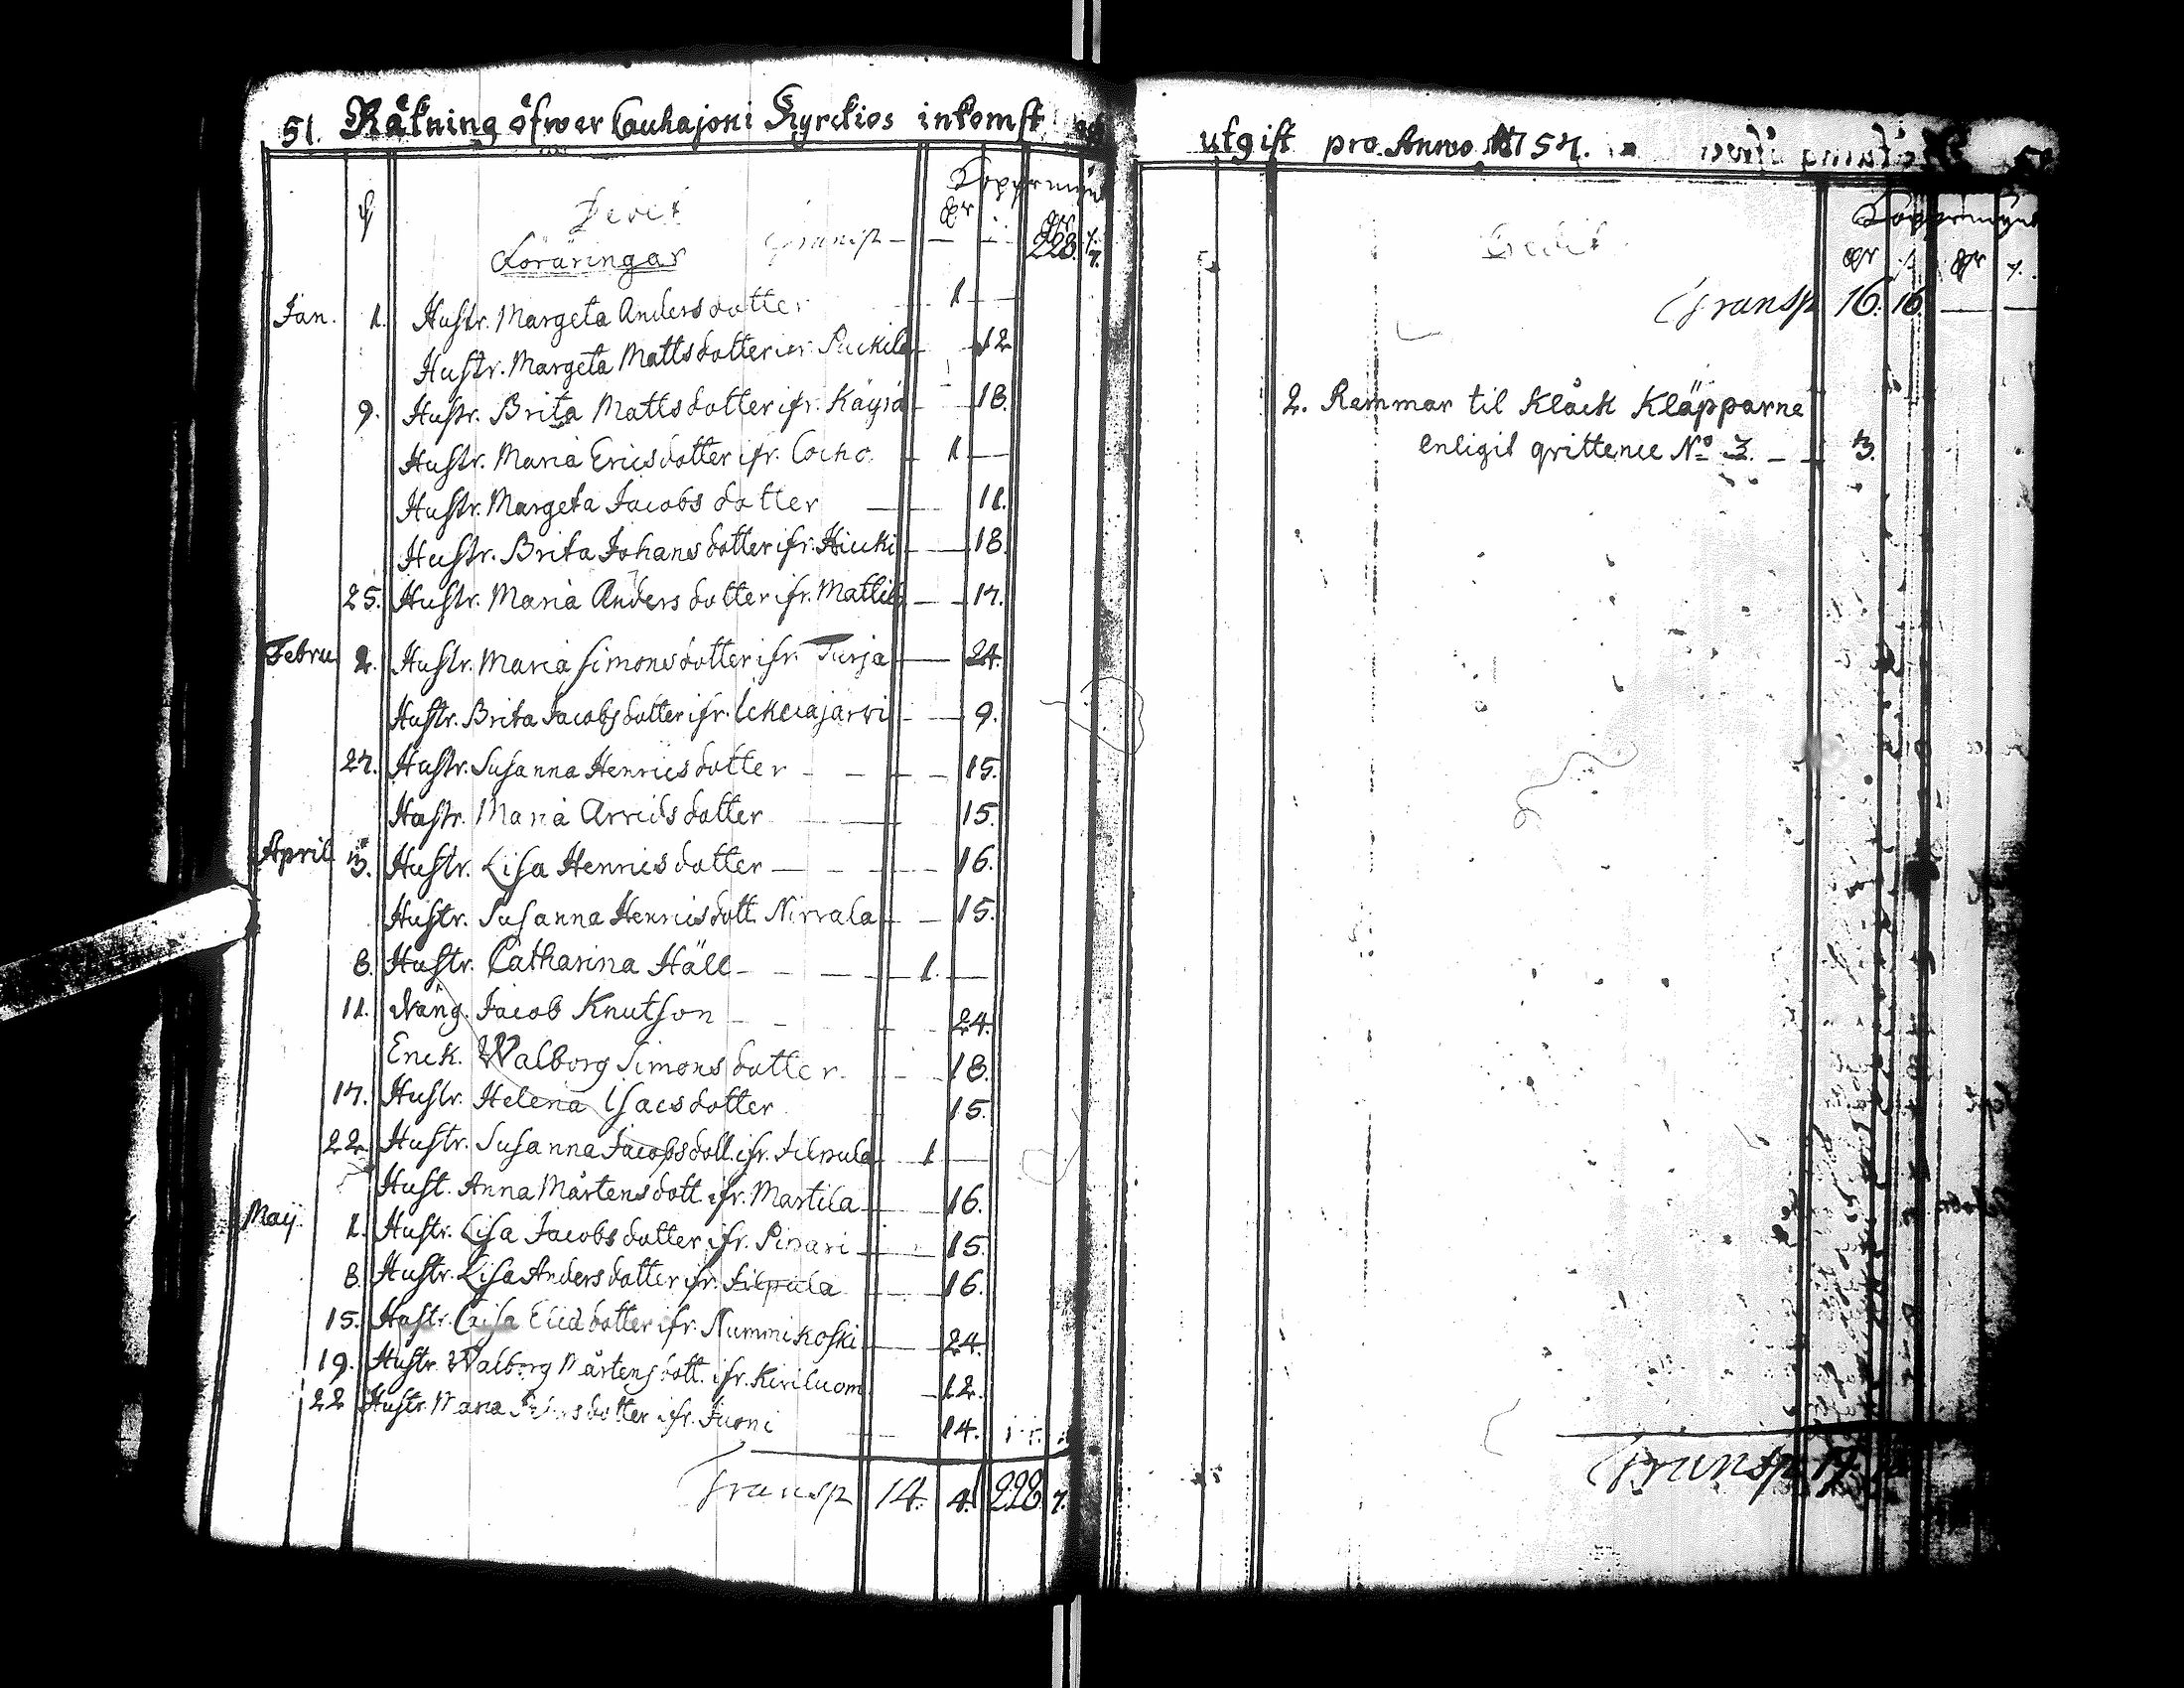 51. Räkning öfwer Cauhajoki Kyrckios inkomst
Debet Koppermünt
Föräringar Transp — — 228. 7.
Jan. 1. Hustr. Margeta Andersdotter — 1 —
Hustr. Margeta Mattsdotter ifr. Puckila — 12
9. Hustr. Brita Mattsdotter ifr. Käyrä — 18.
Hustr. Maria Ericsdotter ifr. Cocho — 1 —
Hustr. Margeta Jacobsdotter — 11.
Hustr. Brita Johansdotter ifr. Hiucki — 18.
25. Hustr. Maria Andersdotter ifr. Mattila — 17.
Febru 2. Hustr. Maria Simonsdotter ifr. Turja — 24.
Hustr. Brita Jacobsdotter ifr. Ickelajärwi — 9.
27. Hustr. Susanna Henricsdotter — 15.
Hustr. Maria Arvidsdotter — 15.
April 3. Hustr. Lisa Henricsdotter — 16.
Hustr. Susanna Henricsdott. Nirvala — 15.
8. Hustr. Catharina Häll — 1. —
11. Dräng. Jacob Knutson — 24.
Enck. Walborg Simonsdotter — 18.
17. Hustr. Helena Isacsdotter 15.
22. Hustr. Susanna Jacobsdott. ifr. Filpula 1 —
Hust. Anna Mårtensdott. ifr. Martila — 16.
May. 1. Hustr. Lisa Jacobsdotter ifr. Pinari — 15.
8. Hustr. Lisa Andersdotter ifr. Filpula — 16.
15. Hustr. Caisa dotter ifr. Nummikoski — 24.
19. Hustr. Walborg Mårtensdott. ifr. Kiriluom — 12.
22 Hustr. Maria dotter ifr. Juoni — 14.
Transp 14. 4. 228. 7.
utgift pro Anno 1754.
Koppermynt
Credit
Transp 16. 16. — —
2. Remmar til Klåck Kläpparne
enligit qvittence No 3. — 3.
Transp 19